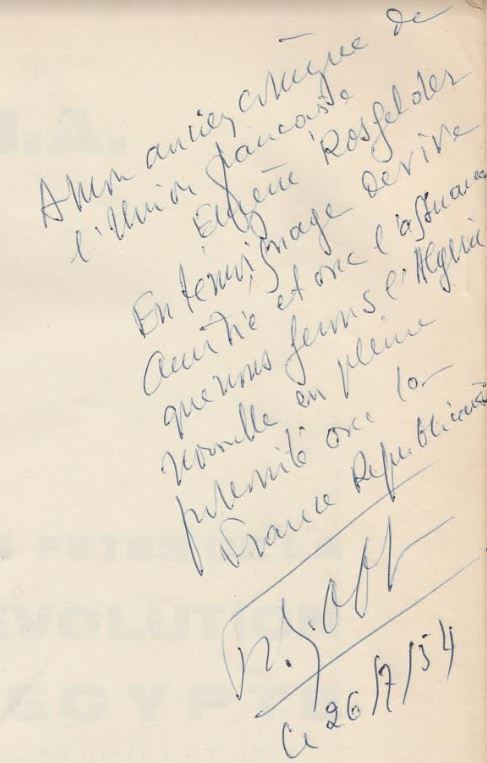 A mon ancien collègue de
l'Union française
Eugène Rosfelder
En témoignage de vive
amitié et avec l'assurance
que nous ferons l'Algérie
nouvelle en pleine
fraternité avec la
France Républicaine
le 26/7/54